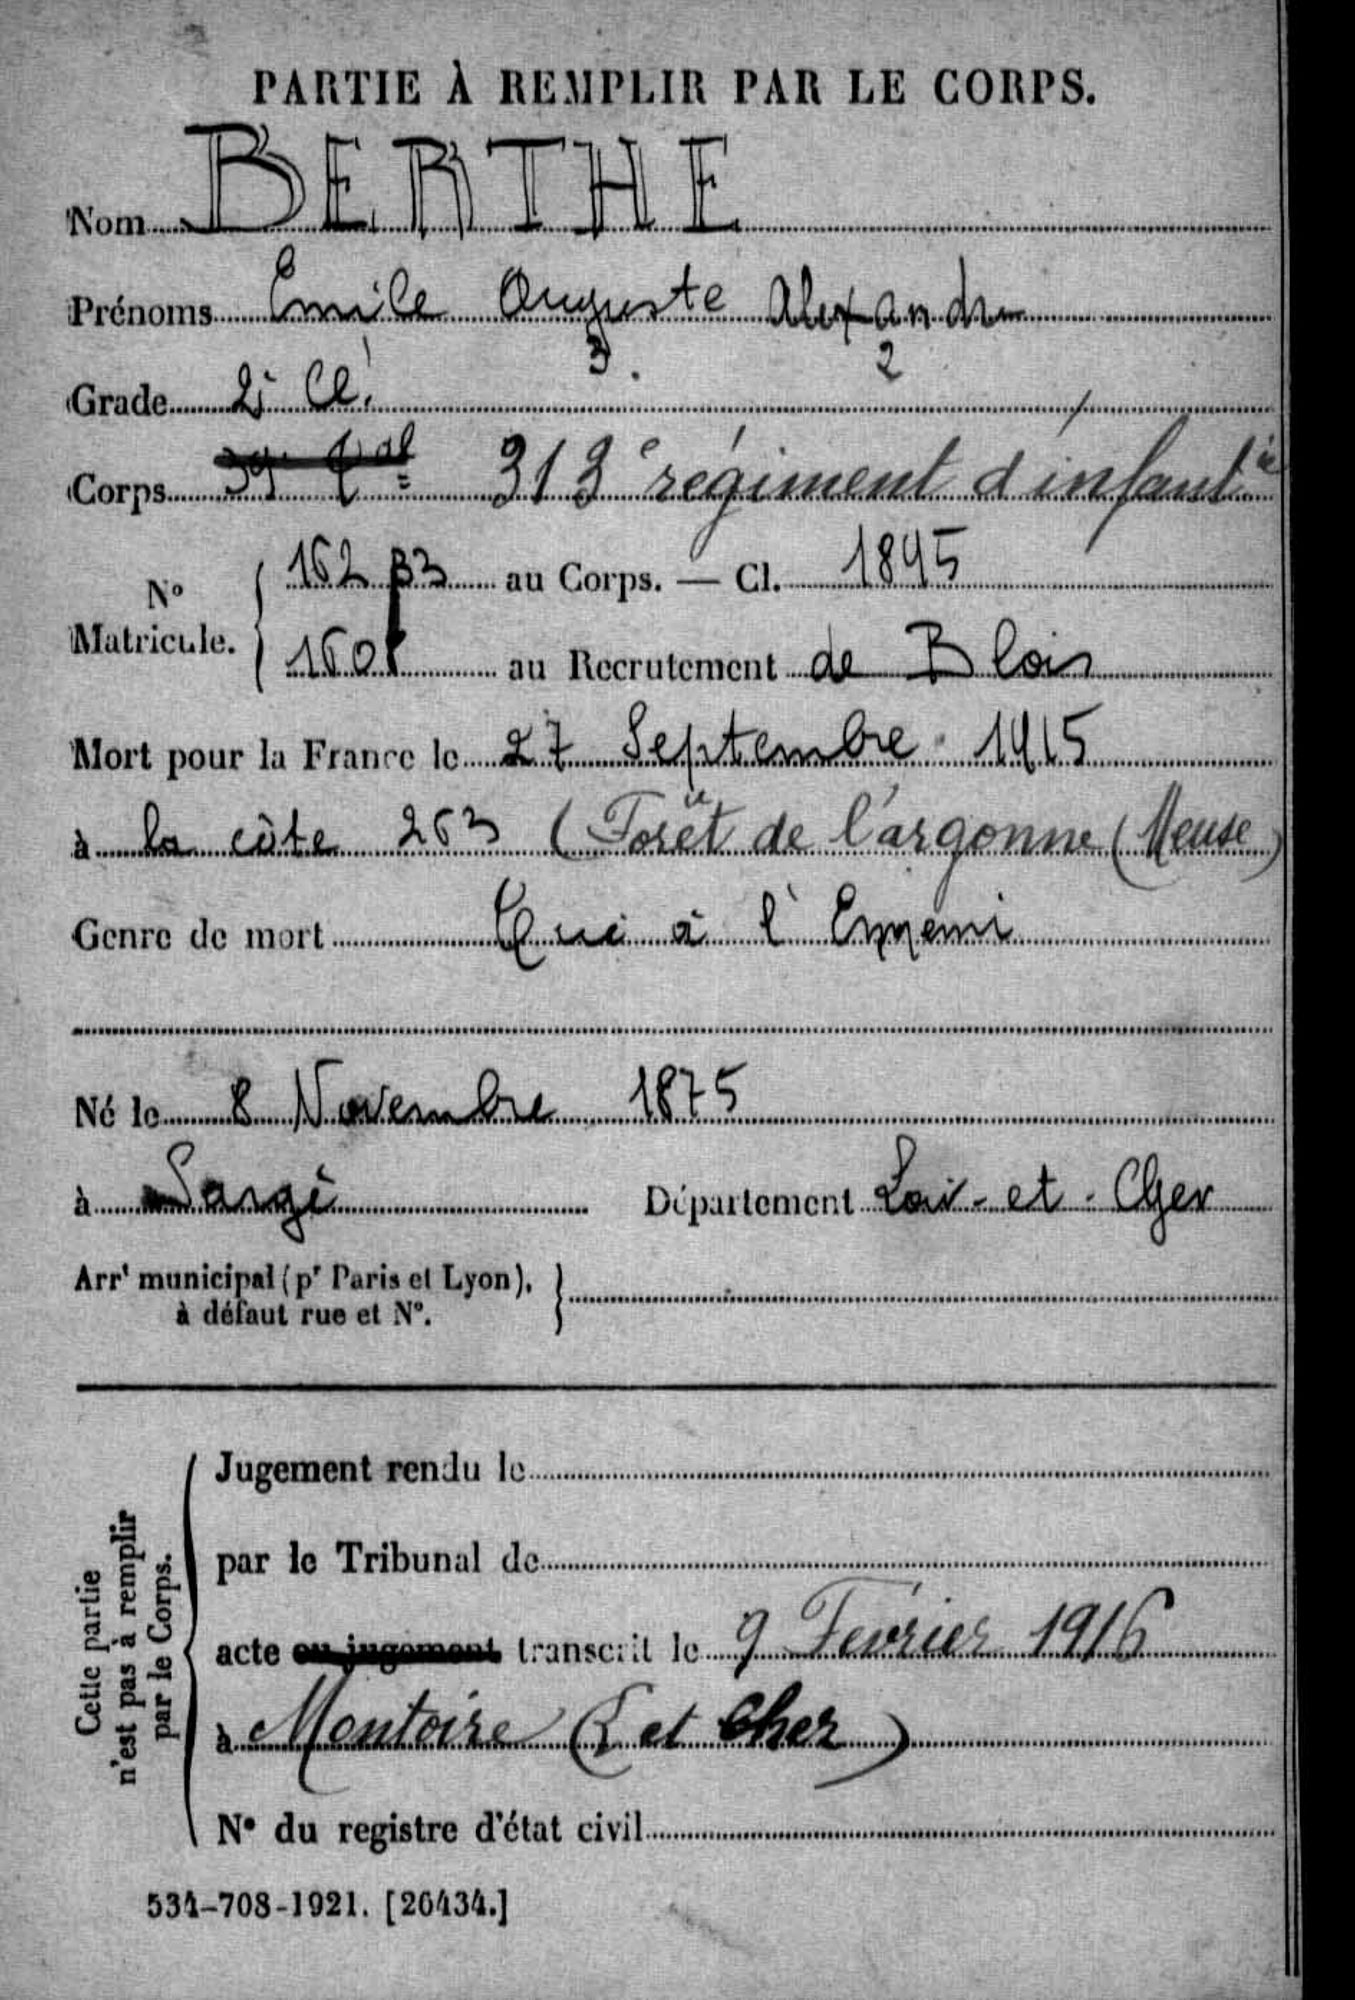 PARTIE À REMPLIR PAR LE CORPS.
Nom BERTHE
Prénoms Emile Auguste Alexandre
3 2
Grade 2è Cl.
Corps 313e régiment d'infantie
No Matricule. 162 au Corps. — Cl. 1895
160 au Recrutement de Blois
Mort pour la France le 27 Septembre 1915
à la côte 263 (Forêt de l'argonne (Meuse)
Genre de mort Tué à l'Ennemi
Né le 8 Novembre 1875
à Sargé Département Loir-et-Cher
Arrt municipal (pr Paris et Lyon),
à défaut rue et No.
Cette partie
n'est pas à remplir
par le Corps.
Jugement rendu le
par le Tribunal de
acte ou jugement transcrit le 9 Février 1916
à Montoire (L et Cher)
No du registre d'état civil
534-708-1921. [26434.]